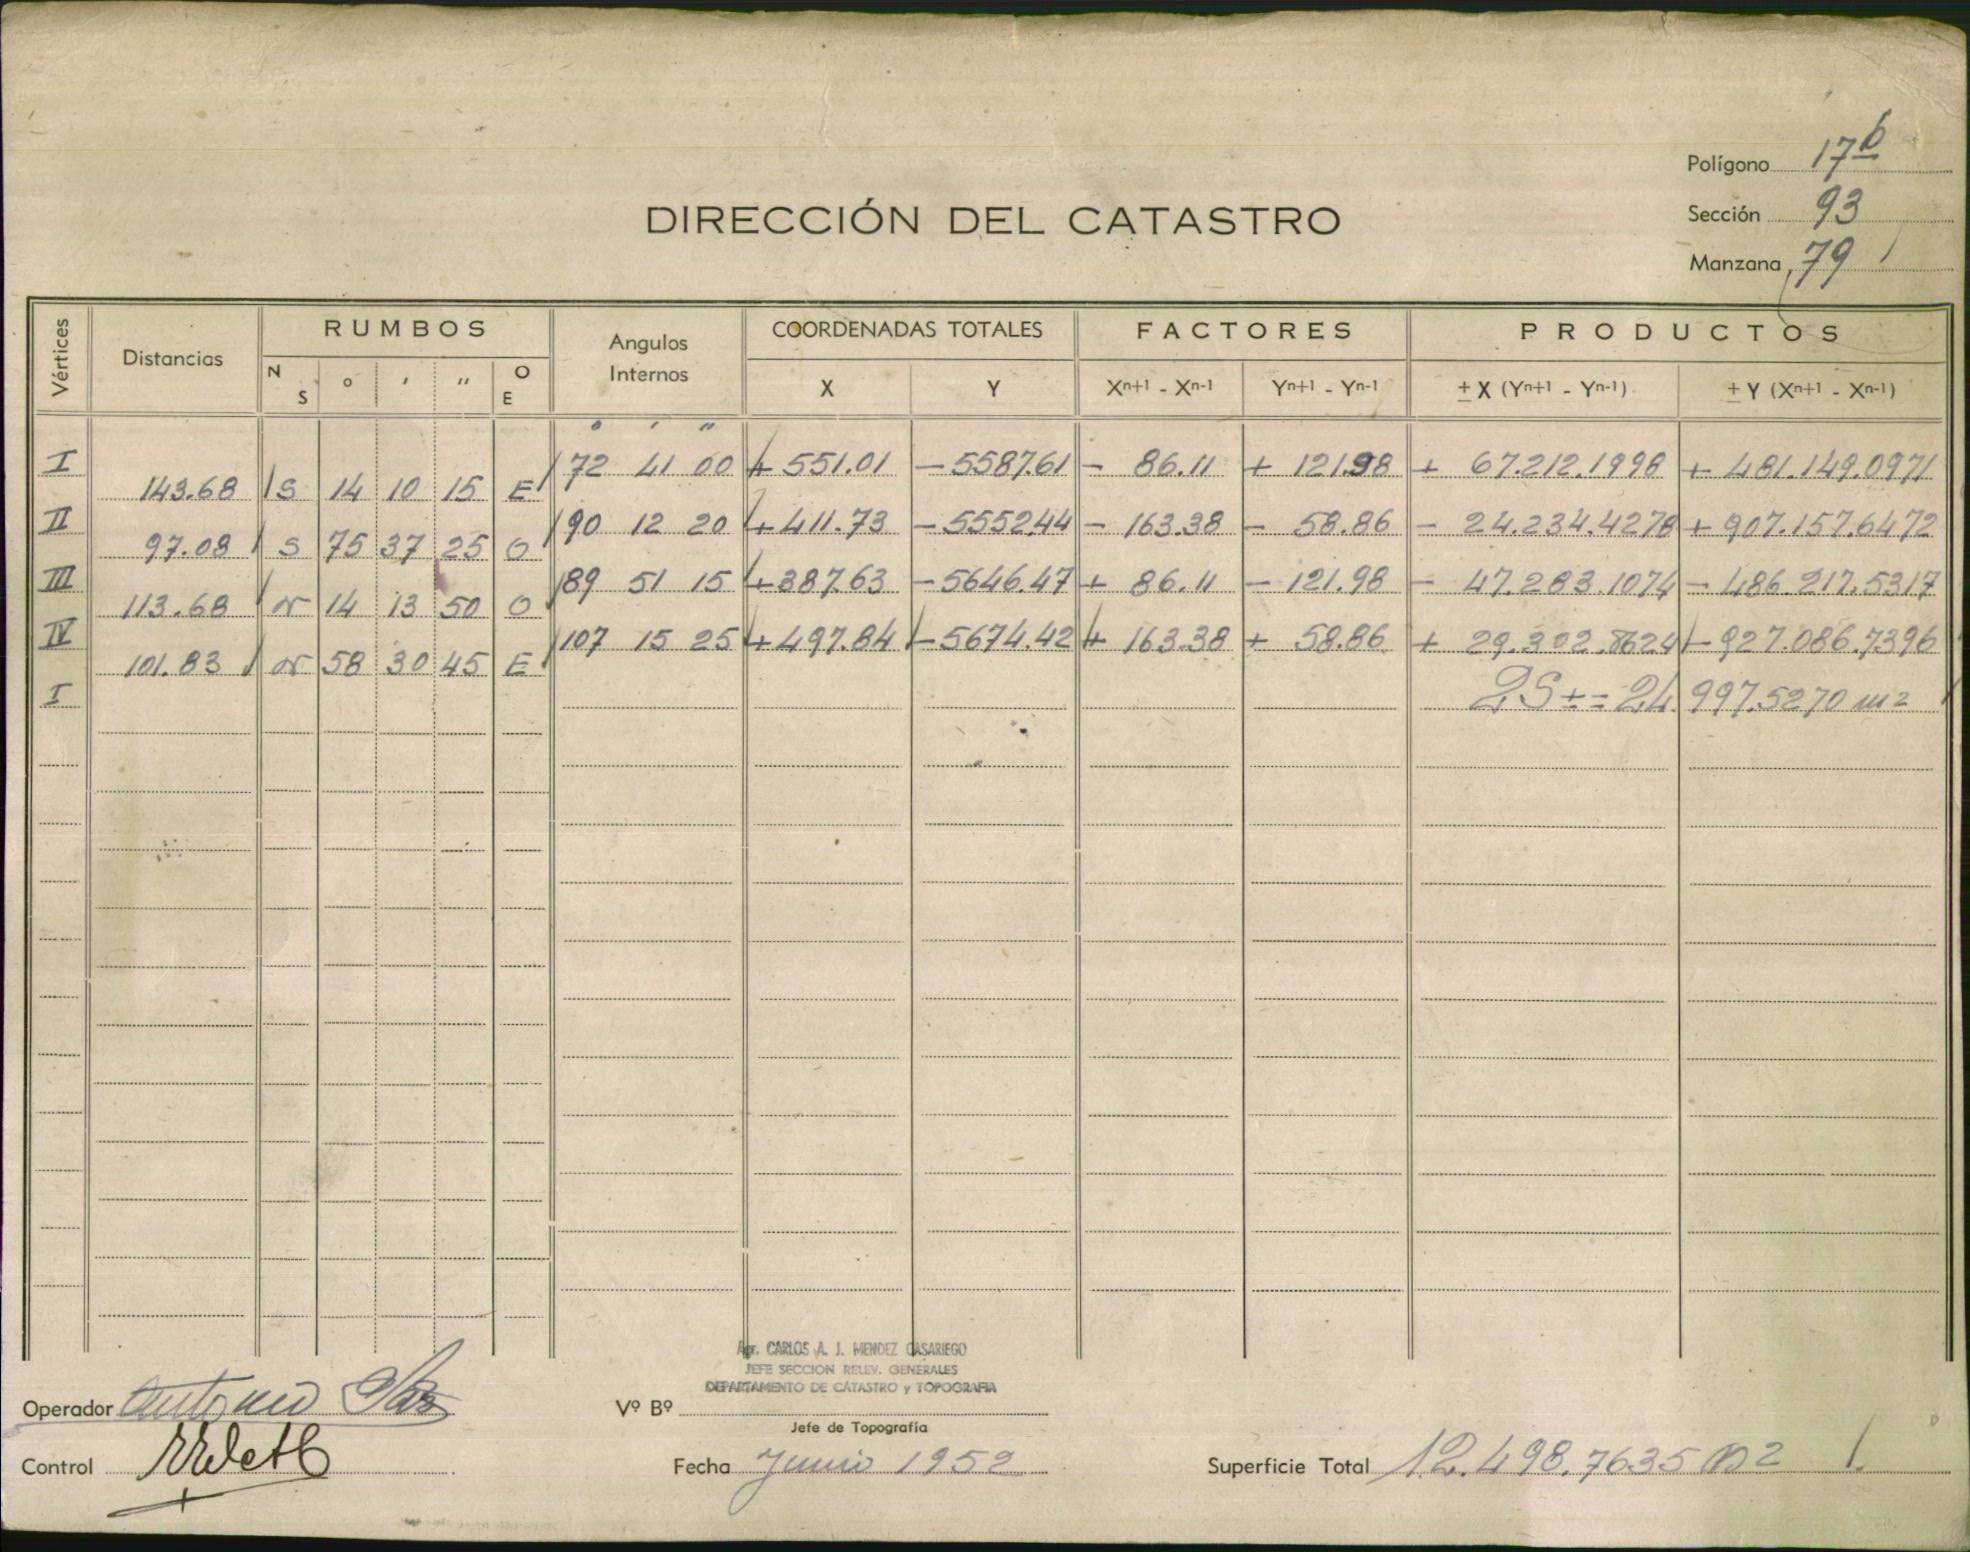 Polígono 17b
Sección 93
Manzana 79
DIRECCIÓN DEL CATASTRO
Vértices Distancias RUMBOS Angulos Internos COORDENADAS TOTALES FACTORES PRODUCTOS
N S ° ' " O E X Y Xn+1 - Xn-1 Yn+1 - Yn-1 ± X (Yn+1 - Yn-1) ± Y (Xn+1 - Xn-1)
° ' "
I 72 41 00 + 551.01 - 5587.61 - 86.11 + 121.98 + 67.212.1998 + 481.149.0971
143.68 S 14 10 15 E
II 90 12 20 + 411.73 - 5552.44 - 163.38 - 58.86 - 24.234.4278 + 907.157.6472
97.08 S 75 37 25 O
III 89 51 15 + 387.63 - 5646.47 + 86.11 - 121.98 - 47.283.1074 - 486.217.5317
113.68 N 14 13 50 O
IV 107 15 25 + 497.84 - 5674.42 + 163.38 + 58.86 + 29.302.8624 - 927.086.7396
101.83 N 58 30 45 E
I 2S ± = 24.997.5270 m2
Agr. CARLOS A. J. MENDEZ CASARIEGO
JEFE SECCION RELEV. GENERALES
DEPARTAMENTO DE CATASTRO y TOPOGRAFIA
Operador Antonio
Vº Bº
Jefe de Topografía
Control
Fecha Junio 1952
Superficie Total 12.498.7635 m2